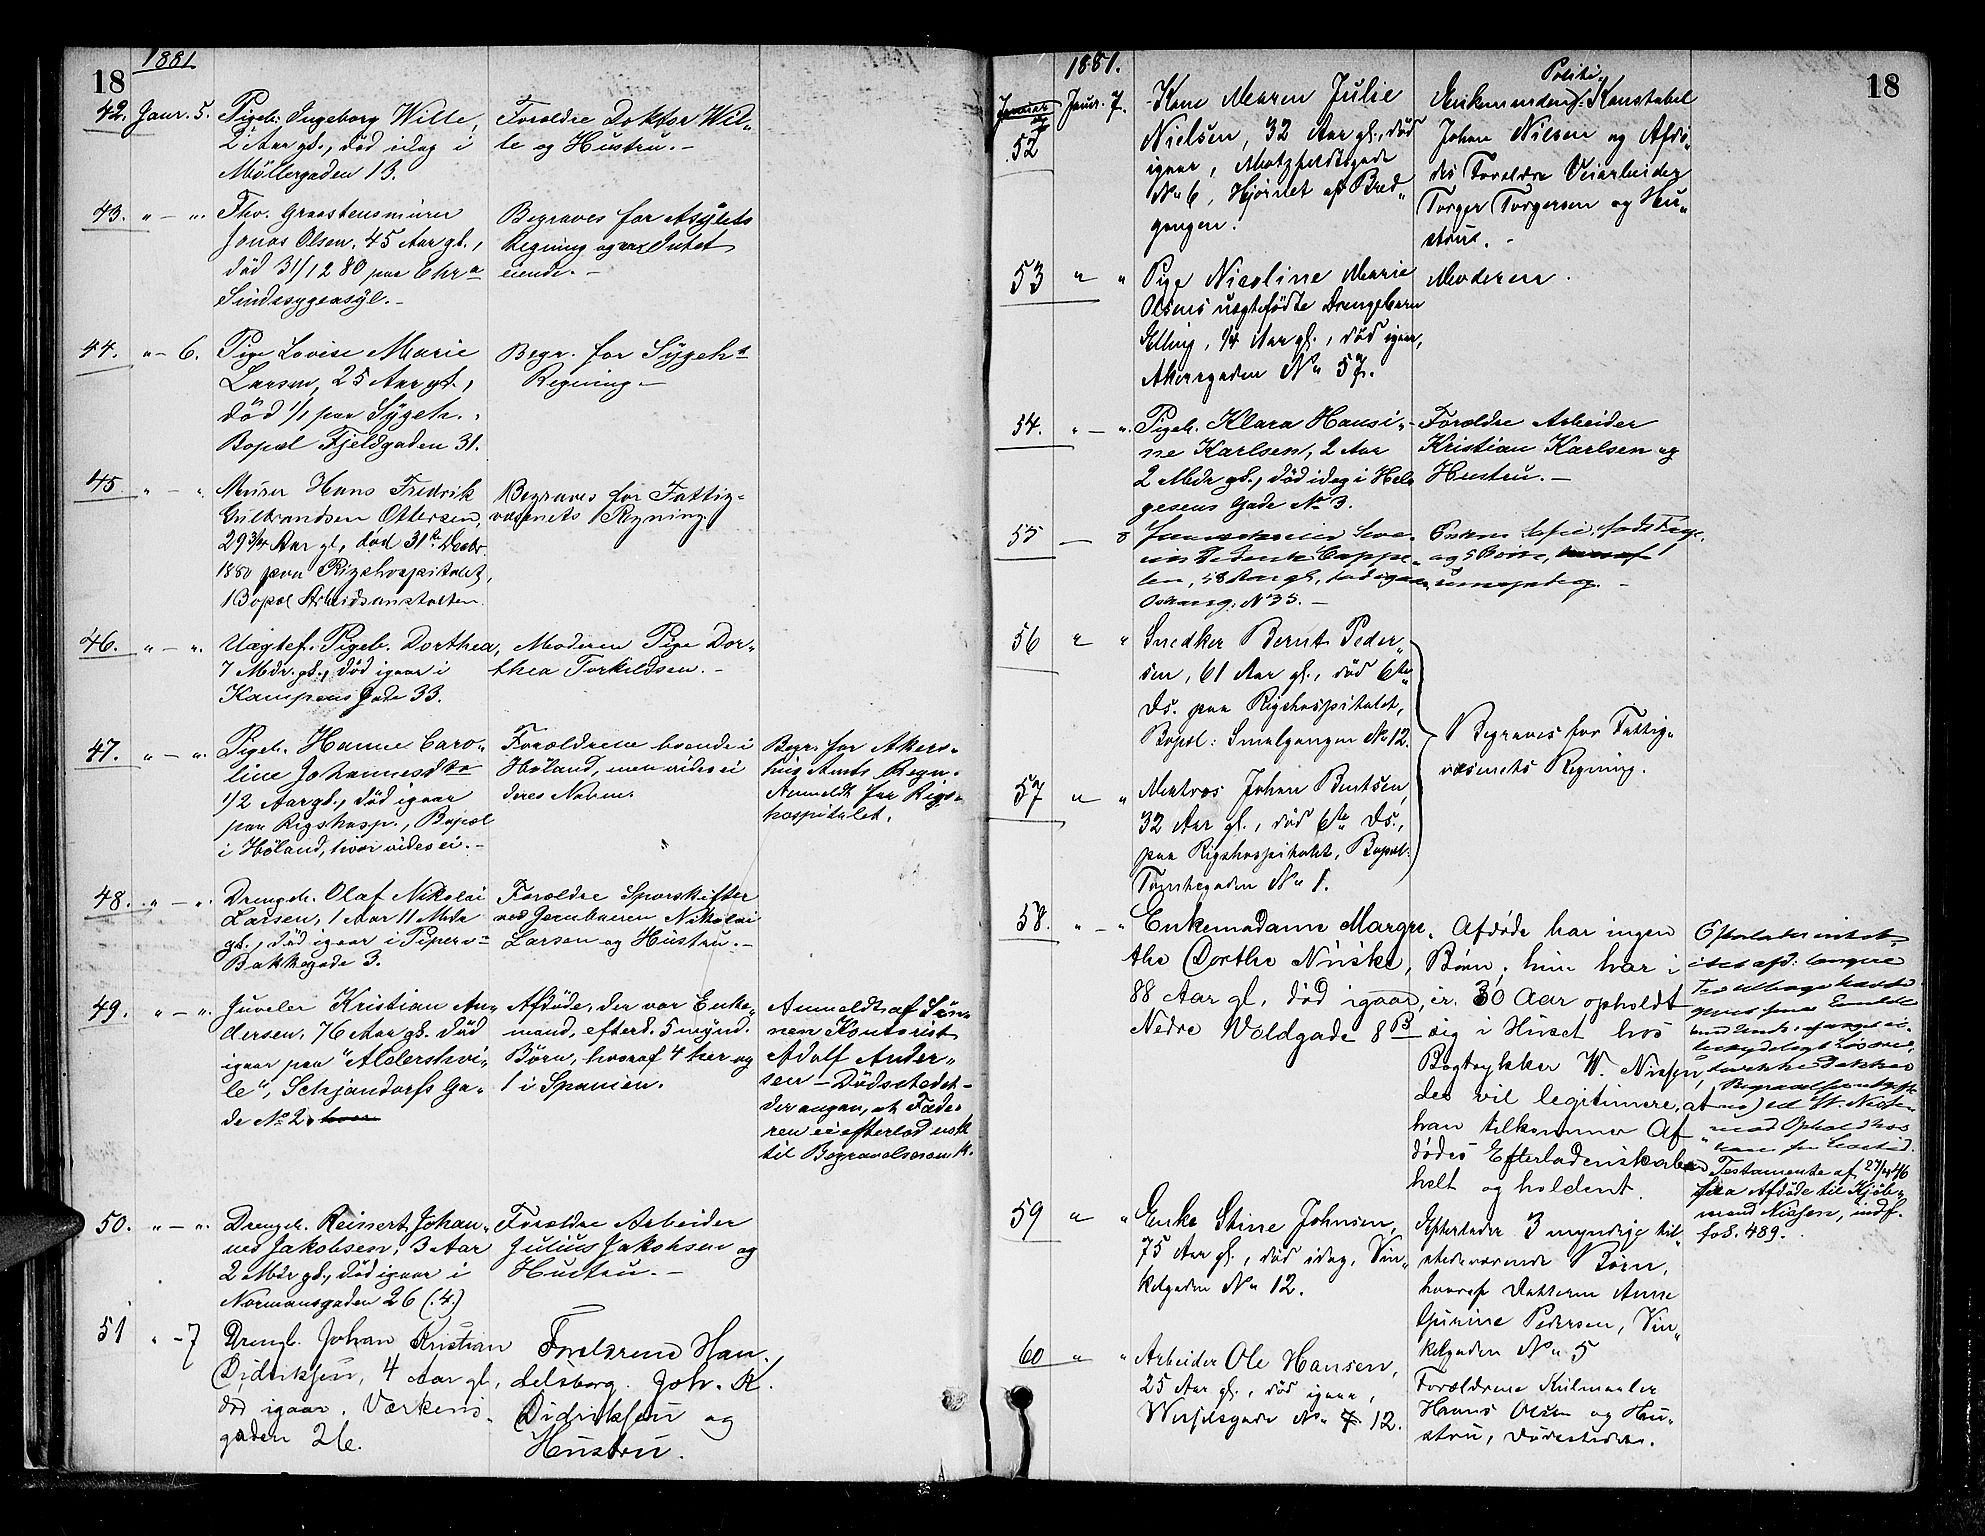 18
1881
42. Janr. 5. Pigeb. Ingeborg Wille,
2 Aar gl., död idag i
Möllergaden 13.
Forældre Doktor Wil„
le og Hustru. –
43. „ – „. Fhv. Graastensmurer
Jonas Olsen, 45 Aar gl.,
död 31/12 80 paa Chra
Sindssygeasyl. –
Begraves for Asylets
Regning og var Intet
eiende. –
44. „ – 6. Pige Lovise Marie
Larsen, 25 Aar gl.,
död 1/1 paa Sygeh.,
Bopæl Fjeldgaden 31.
Begr. for Sygehs
Regning –
45. „ – „ Murer Hans Fredrik
Gulbrandsen Ottersen,
29 3/4 Aar gl, död 31te Decbr
1880 paa Rigshospitalet,
Bopæl Arbeidsanstalten.
Begraves for Fattig-
væsnets Regning.
46. „ – „. Uægtef. Pigeb. Dorthea,
7 Mdr. gl., död igaar i
Kampens Gade 33.
Moderen Pige Dor„
thea Torkildsen. –
47. „ – „. Pigeb. Hanne Caro„
line Johannesdtr
1/2 Aar gl., död igaar
paa Rigshosp., Bopæl
i Høland, hvor vides ei. –
Forældrene boende i
Høland, men vides ei
deres Navne.
Begr. for Akers-
hus Amts Regn.
Anmeldt fra Rigs-
hospitalet.
48. „ – „. Drengeb. Olaf Nikolai
Larsen, 1 Aar 11 Mdr
gl., död igaar i Pipervi=
Bakkegade 3.
Forældre Sporskifter
ved Jernbanen Nikolai
Larsen og Hustru. –
49. „ – „. Juveler Kristian An„
dersen, 76 Aar gl. död
igaar paa "Aldershvi-
le", Schjandorfs Ga-
de No 2. hvor
Afdöde, der var Enke„
mand, efterl. 5 mynd.
Börn, hvoraf 4 her og
1 i Spanien.
Anmeldt af Sön-
nen Kontorist
Adolf Ander-
sen – Dödsstedet –
der angav, at Fade-
ren ei efterlod nok
til Begravelsesomk.
50. „ – „. Drengeb. Reinert Johan„
nes Jakobsen, 3 Aar
2 Mdr gl., död igaar i
Normansgaden 26 (.4.)
Forældre Arbeider
Julius Jakobsen og
Hustru. –
51 „ – 7 Drengb. Johan Kristian
Didriksen, 4 Aar gl,
död igaar. Værkens-
gaden 26.
Forældrene Han-
delsborg. Joh. K.
Didriksen og
Hustru.
18
1881.
Januar
52 Janr. 7. Kone Maren Julie
Nielsen, 32 Aar gl., död
igaar, Motzfeldtsgade
No 6, Hjørnet af Bred„
gangen.
Politi„
Enkemanden, Konstabel
Johan Nilsen og Afdö„
des Forældre Veiarbeider
Torger Torgersen og Hu„
stru. –
53 „ „ Pige Nicoline Marie
Olsens uægtefödte Drengebarn
Elling, 1/4 Aar gl., död igaar,
Akersgaden No 57.
Moderen.
54. „ – „. Pigeb. Klara Hansi„
ne Karlsen, 2 Aar
2 Mdr gl., död idag i Hel„
gesens Gade No 3.
Forældre Arbeider
Kristian Karlsen og
Hustru. –
55 — 8
58 Aar gl., död igaar
Oskarsg. No 35. –
og 5 Börn, hvoraf 1
56 „ „ Snedker Bernt Peder„
sen, 61 Aar gl., död 6te
Ds. paa Rigshospitalet,
Bopæl: Smalgangen No 12.
Begraves for Fattig„
væsenets Regning.
57 „ „ Matros Johan Bentsen,
32 Aar gl., död 6te Ds.,
paa Rigshospitalet, Bopæl:
Tomtegaden No 1.
58. „ – „ Enkemadame Margre„
the Dorthe Niiske,
88 Aar gl, död igaar,
Nedre Voldgade 8B
Afdöde har ingen
Börn; hun har i
ca. 30 Aar opholdt
sig i Huset hos
Bogtrykker W. Nissen,
der vil legitimere, at
han tilkommer Af„
dödes Efterladenskaber
helt og holdent.
Testamente af 27/4 46
fra Afdöde til Kjöb„
mand Nissen, indf.
fol. 489.
59 „ „ Enke Stine Johnsen,
75 Aar gl., död idag, Vin„
kelgaden No 12.
Efterlader 3 myndige til„
stedeværende Börn,
hvoraf Datteren Anne
Gurine Pedersen, Vin„
kelgaden No 5
60 „ „ Arbeider Ole Hansen,
25 Aar gl., död igaar,
Wesselsgade No 7 12.
Forældrene Kulmaaler
Hans Olsen og Hu„
stru, Dödsstedet.